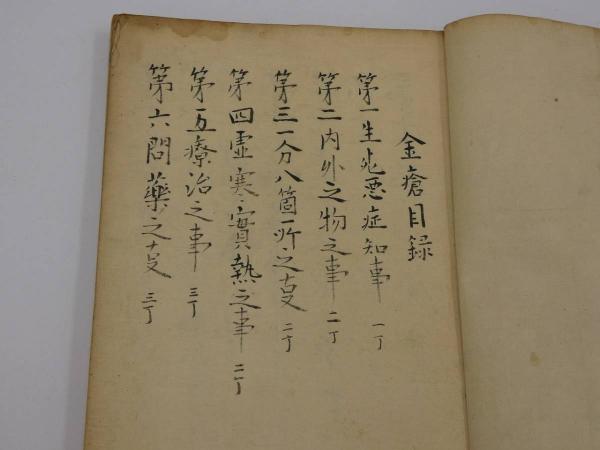 金瘡目録
第一生死悪症知事 一丁
第二内外之物之事 二丁
第三一分八箇所之事 二丁
第四虚寒実熱之事 二丁
第五療治之事 三丁
第六問薬之事 三丁